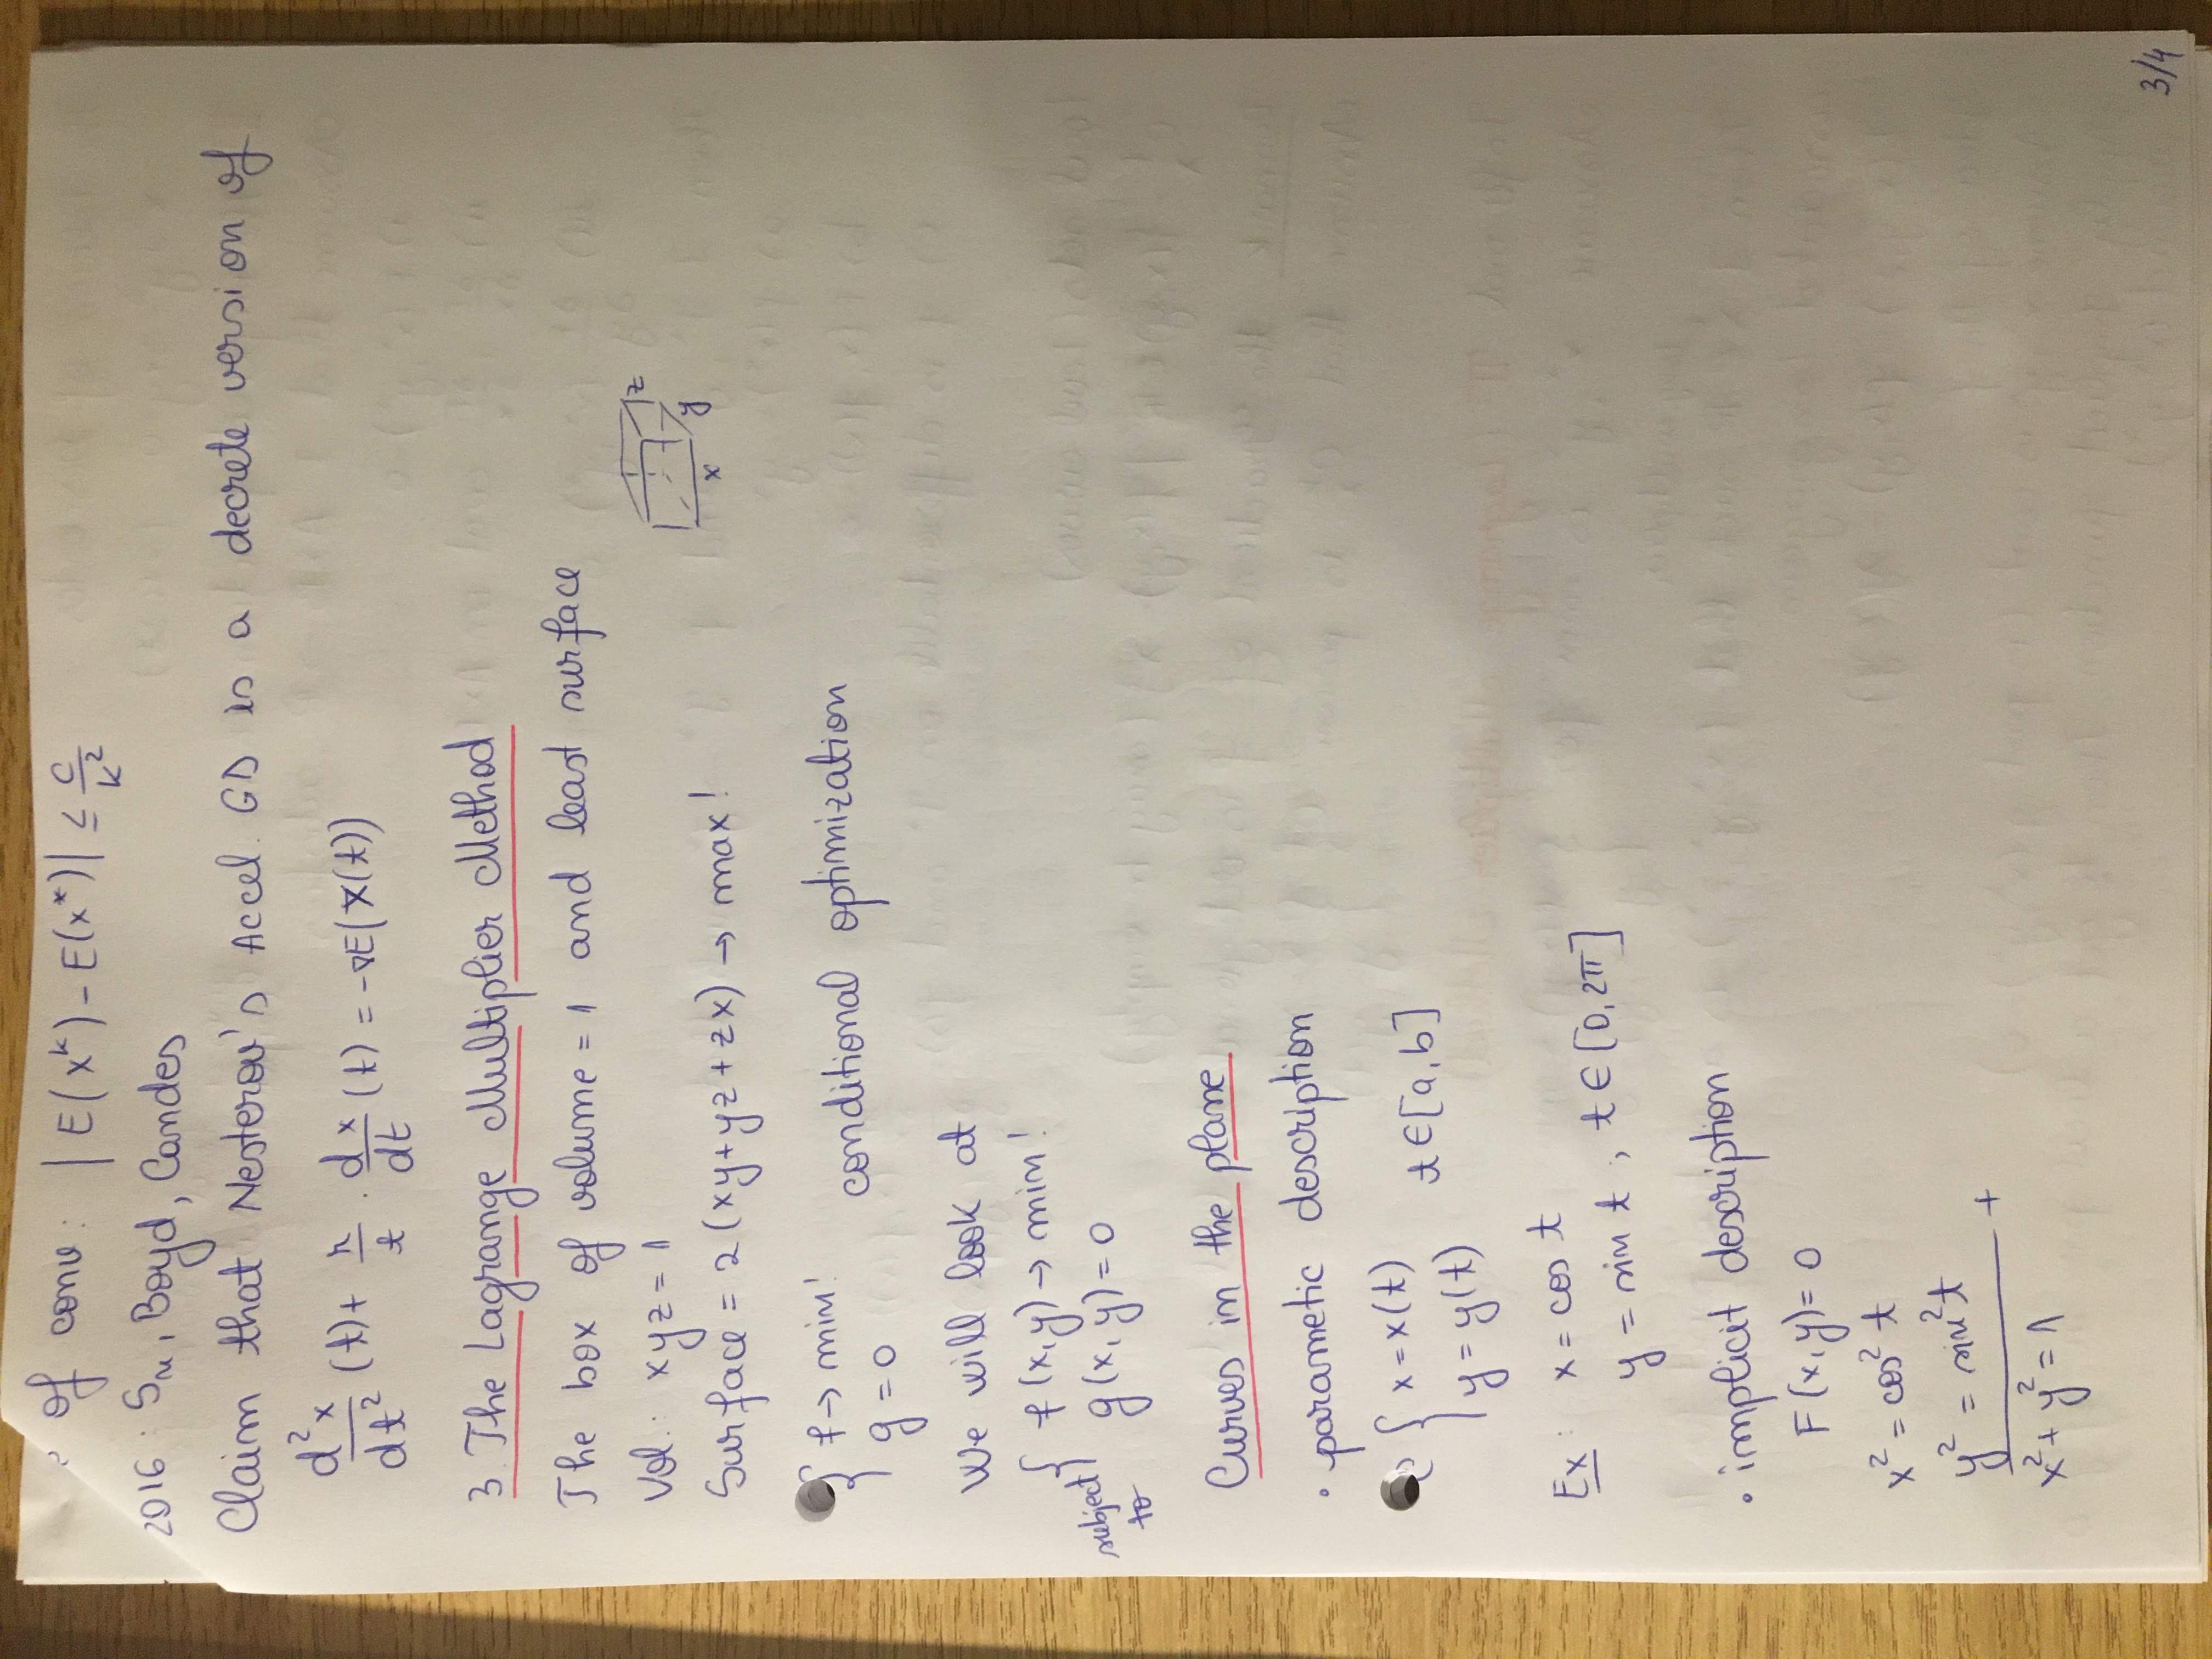 of conv: |E(x^k) - E(x^*)| ≤ c/k^2
2016: Su, Boyd, Candes
Claim that Nesterov's Accel. GD is a decrete version of
d^2x/dt^2 (t) + r/t · dx/dt (t) = -∇E(x(t))
3. The Lagrange Multiplier Method
The box of volume = 1 and least surface
Vol.: xyz = 1
Surface = 2(xy+yz+zx) → max!
x y z
{ f → min!
g = 0
conditional optimization
We will look at
{ f(x,y) → min!
subject to
g(x,y) = 0
Curves in the plane
• parametic description
{ x = x(t)
y = y(t)
t ∈ [a,b]
Ex: x = cos t
y = sin t ; t ∈ [0,2π]
• implicit description
F(x,y) = 0
x^2 = cos^2 t
y^2 = sin^2 t
+
x^2 + y^2 = 1
3/4